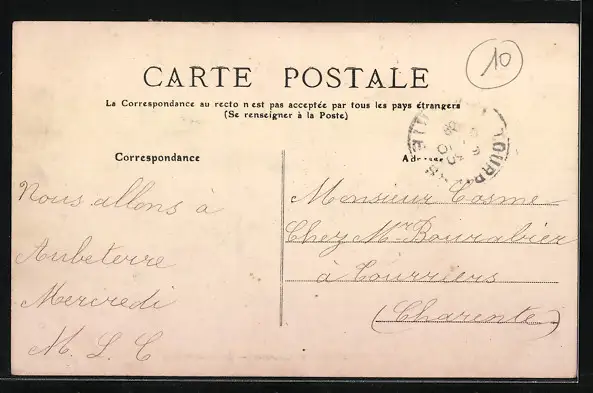 10
CARTE POSTALE
La Correspondance au recto n'est pas acceptée par tous les pays étrangers
(Se renseigner à la Poste)
Correspondance
Adresse
Nous allons à
Aubeterre
Mercredi
M. L. C
Monsieur Cosme
Chez Mr
à Courriers
(Charente)